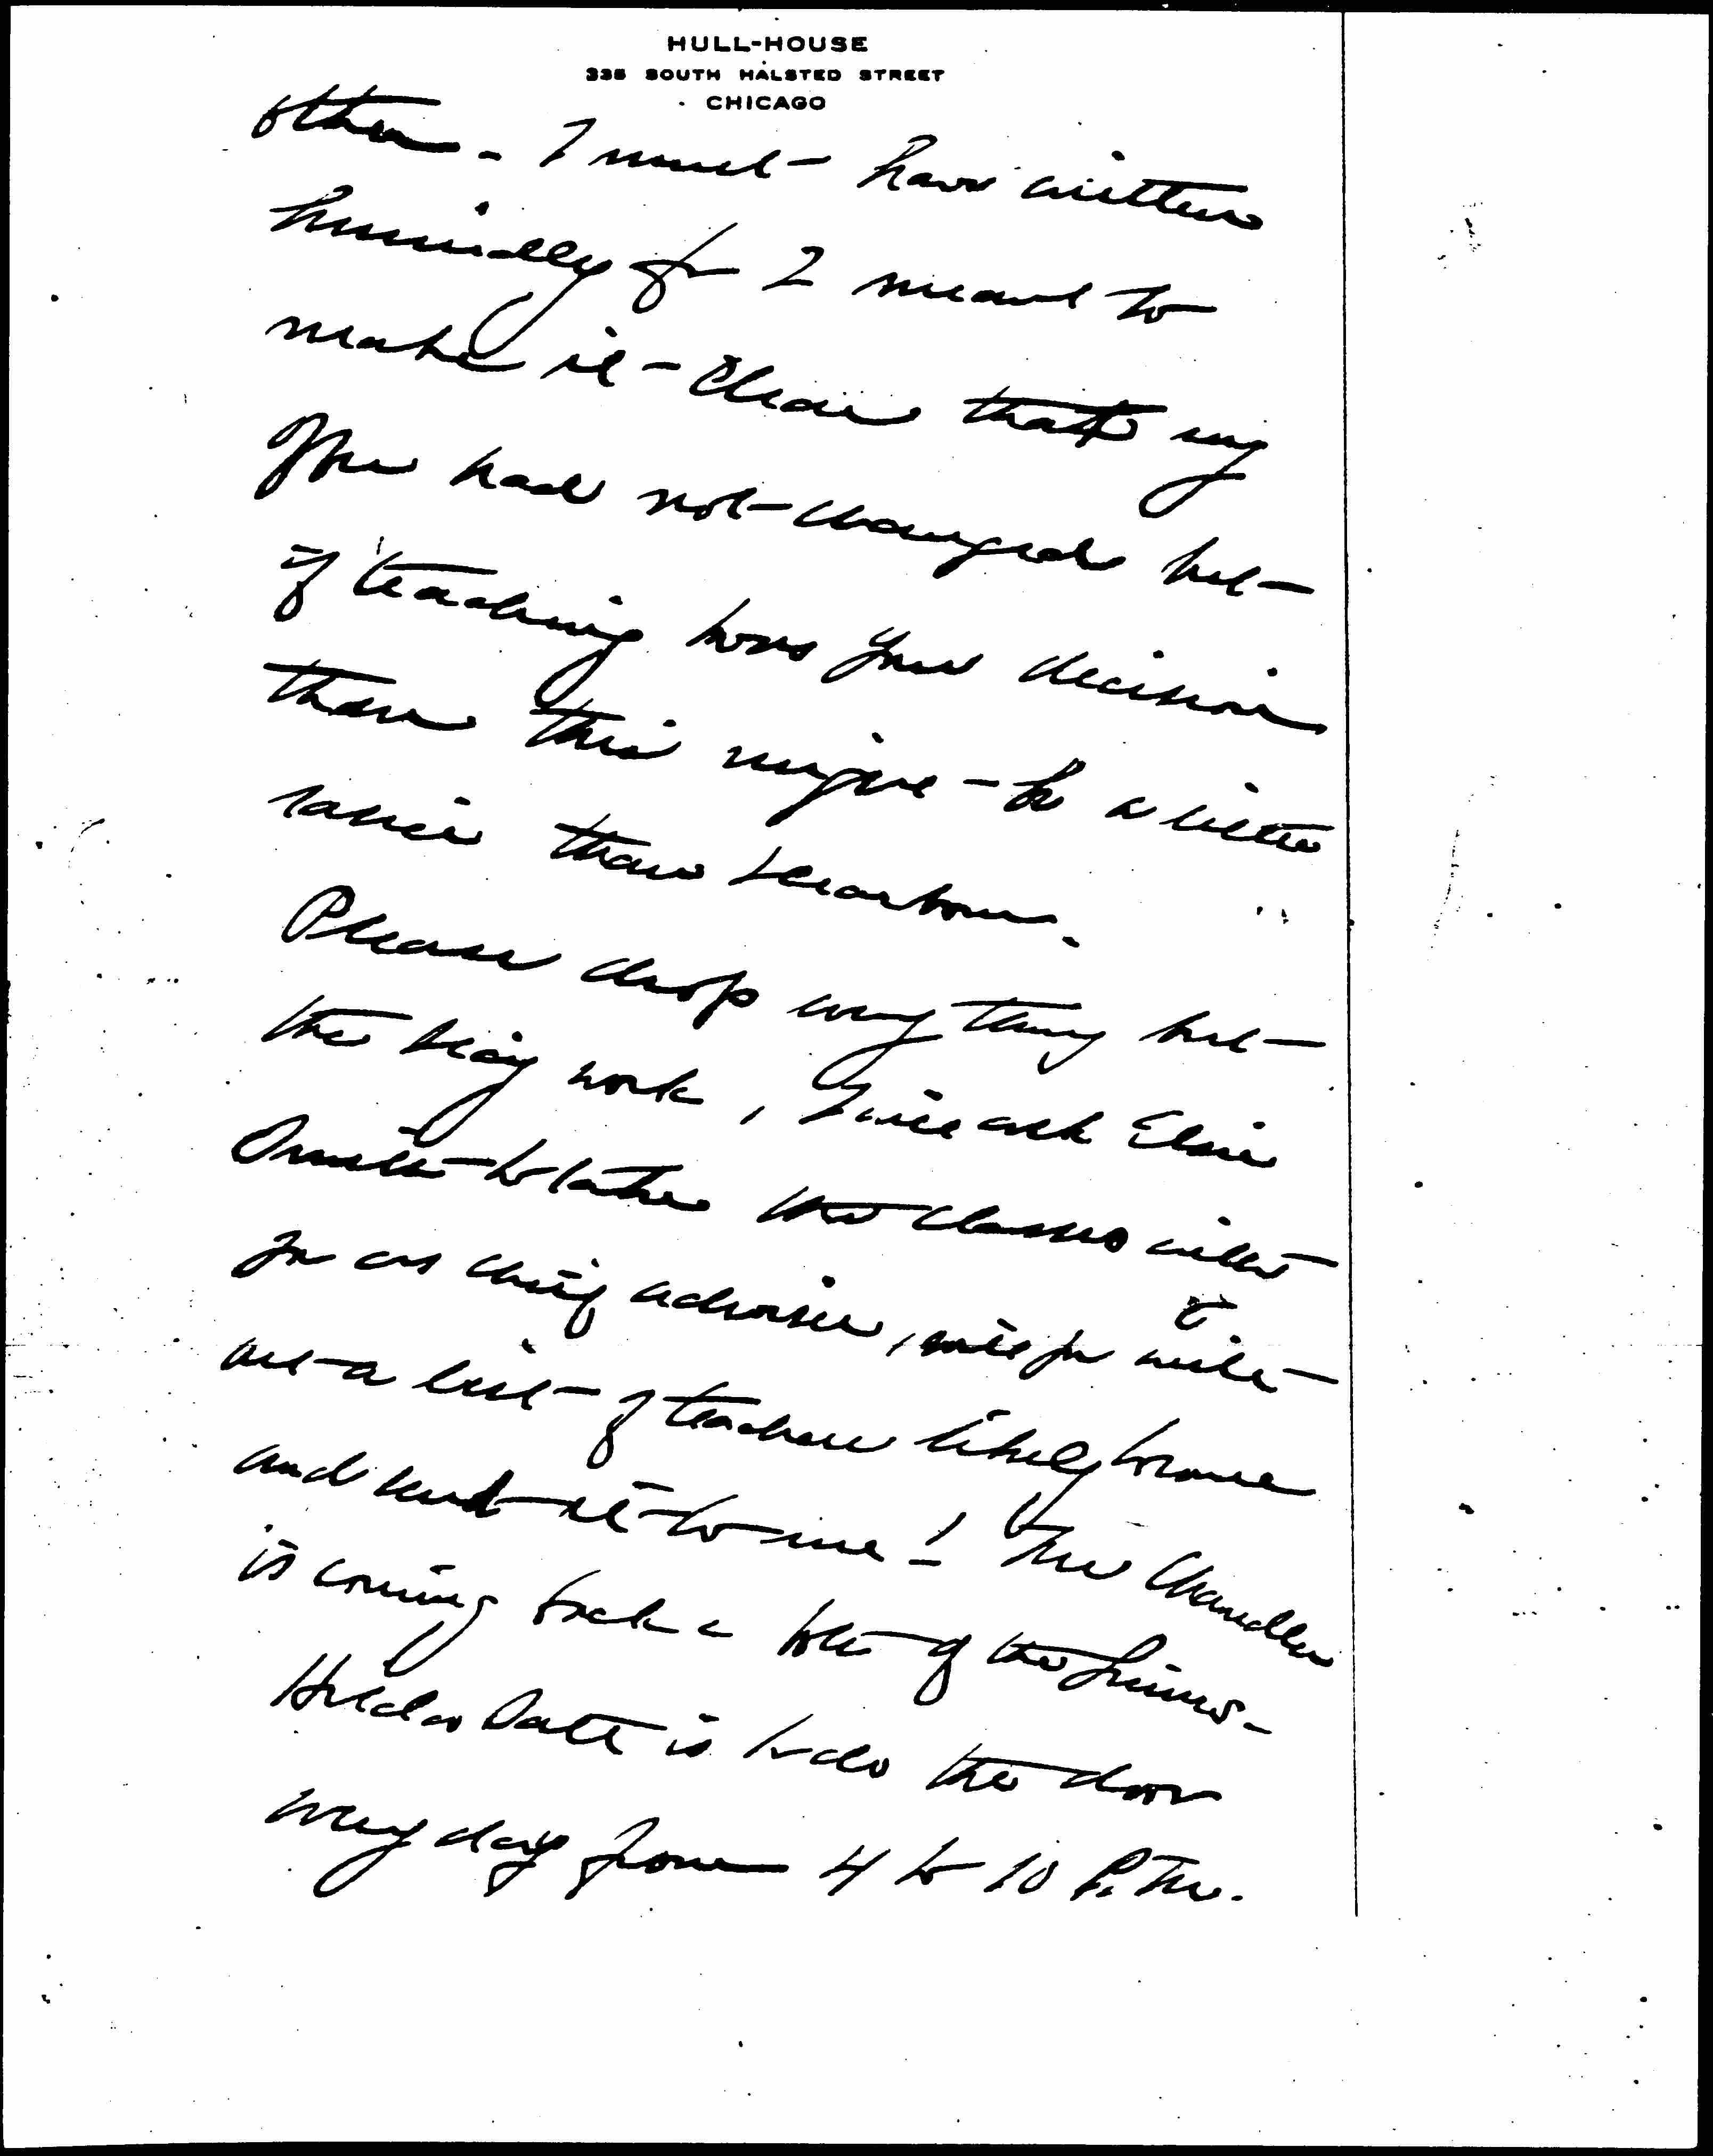 HULL-HOUSE
335 SOUTH HALSTED STREET
CHICAGO
other. I must have written
hurriedly for I meant to
make it clear that my
had not changed but
if teaching was your decision
then this might be a little
easier than
Please drop every thing but
the day work, I will ask Elsie
Smith to take the classes with
you as chief adviser, will you write
out a list of teachers likely to come
and send it to me! Mrs Chandler
is coming back a bit of the
Hilda Satt is to do the door
every day from 4 to 10 P.M.